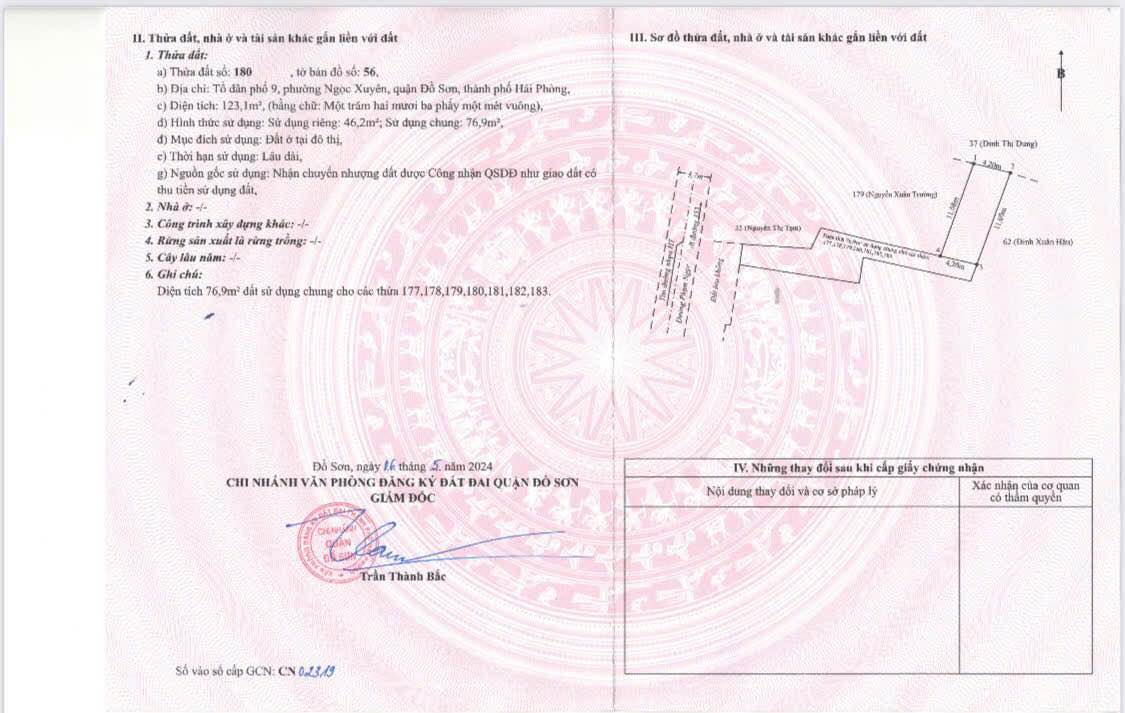 II. Thửa đất, nhà ở và tài sản khác gắn liền với đất
1. Thửa đất:
a) Thửa đất số: 180 , tờ bản đồ số: 56,
b) Địa chỉ: Tổ dân phố 9, phường Ngọc Xuyên, quận Đồ Sơn, thành phố Hải Phòng,
c) Diện tích: 123,1m², (bằng chữ: Một trăm hai mươi ba phẩy một mét vuông),
d) Hình thức sử dụng: Sử dụng riêng: 46,2m²; Sử dụng chung: 76,9m²,
đ) Mục đích sử dụng: Đất ở tại đô thị,
e) Thời hạn sử dụng: Lâu dài,
g) Nguồn gốc sử dụng: Nhận chuyển nhượng đất được Công nhận QSDĐ như giao đất có
thu tiền sử dụng đất,
2. Nhà ở: -/-
3. Công trình xây dựng khác: -/-
4. Rừng sản xuất là rừng trồng: -/-
5. Cây lâu năm: -/-
6. Ghi chú:
Diện tích 76,9m² đất sử dụng chung cho các thửa 177,178,179,180,181,182,183.
Đồ Sơn, ngày 16 tháng 5 năm 2024
CHI NHÁNH VĂN PHÒNG ĐĂNG KÝ ĐẤT ĐAI QUẬN ĐỒ SƠN
GIÁM ĐỐC
CHI NHÁNH
QUẬN
ĐỒ SƠN
Trần Thành Bắc
Số vào sổ cấp GCN: CN 02319
III. Sơ đồ thửa đất, nhà ở và tài sản khác gắn liền với đất
B
37 (Đinh Thị Dung)
1
4,20m
2
179 (Nguyễn Xuân Trường)
11,08m
62 (Đinh Xuân Hậu)
4
4,20m
3
32 (Nguyễn Thị Tươi)
Đường Phạm Ngọc
IV. Những thay đổi sau khi cấp giấy chứng nhận
Nội dung thay đổi và cơ sở pháp lý
Xác nhận của cơ quan
có thẩm quyền